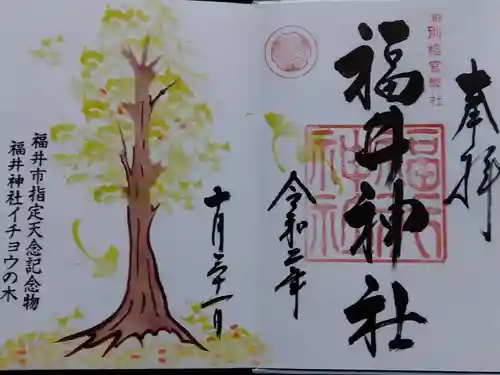 奉拝
旧別格官幣社
福井神社
令和二年
十月三十一日
福井市指定天念記念物
福井神社イチョウの木